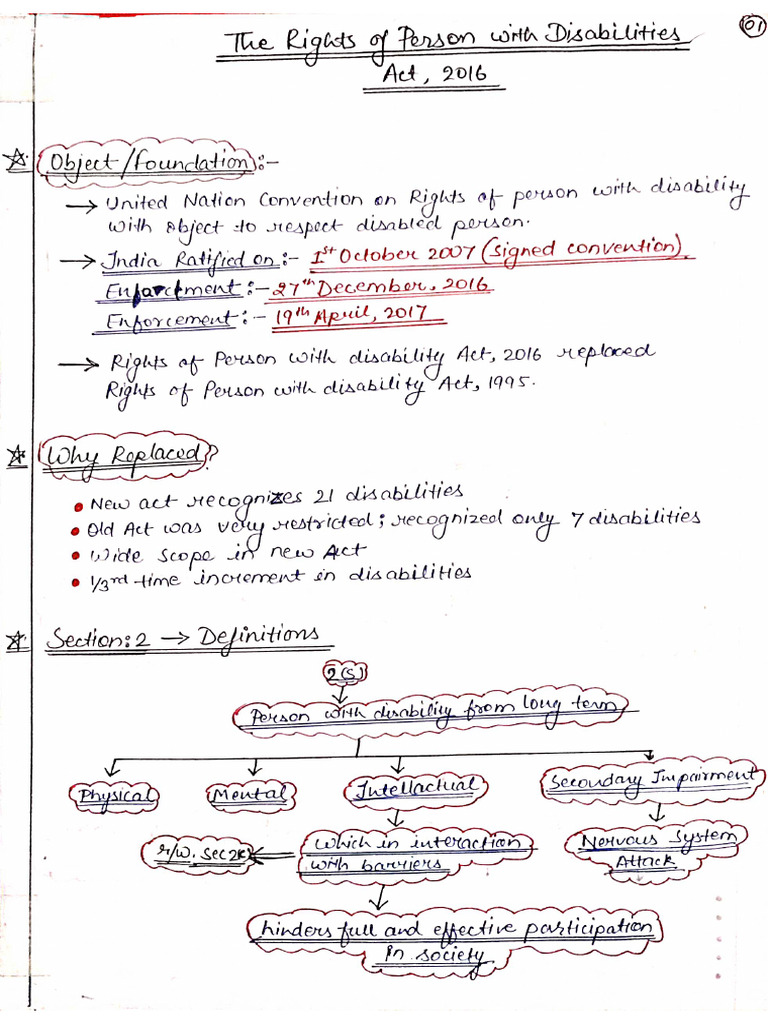 01
The Rights of Person with Disabilities
Act, 2016
Object/foundation:-
→ United Nation Convention on Rights of person with disability
with object to respect disabled person.
→ India Ratified on:- 1st October 2007 (signed convention)
Enfarctment:- 27th December, 2016
Enforcement:- 19th April, 2017
→ Rights of Person with disability Act, 2016 replaced
Rights of Person with disability Act, 1995.
Why Replaced?
• New act recognizes 21 disabilities
• Old Act was very restricted; recognized only 7 disabilities
• Wide scope in new Act
• 1/3rd time increment in disabilities
Section:2 → Definitions
2(s)
Person with disability from long term
Physical Mental Intellactual Secondary Impairment
r/w. sec 2(c) which in interaction Nervous System
with barriers Attack
hinders full and effective participation
in society